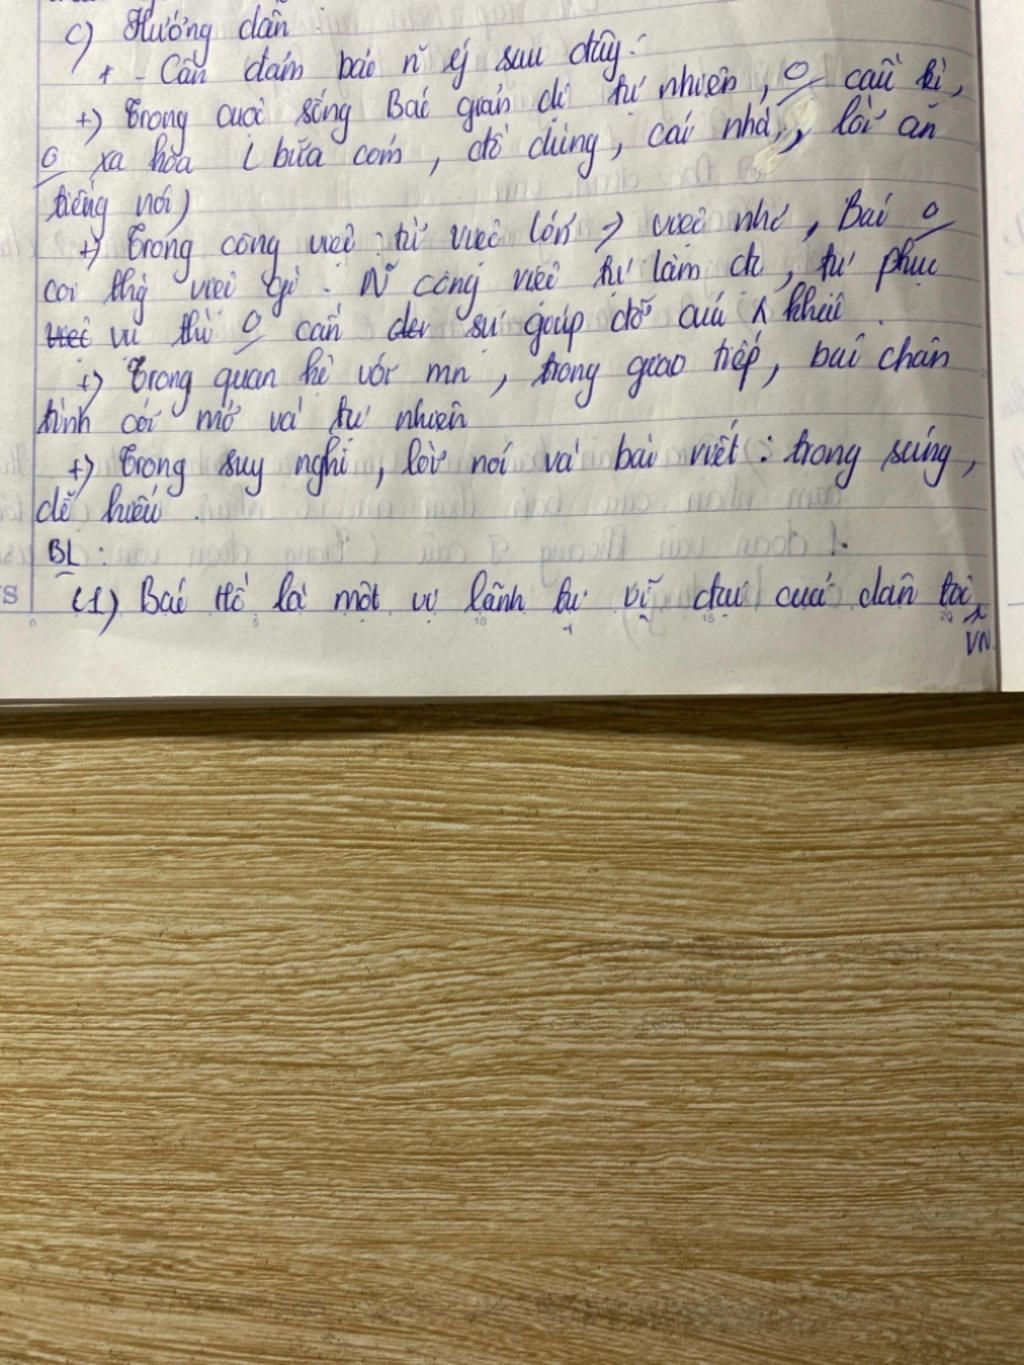 c) Hướng dẫn :
+ - Cần đảm bảo n̆ ý sau đây :
+) Trong cuộc sống Bác giản dị tự nhiên, 0 cầu kì,
0 xa hoa ( bữa cơm, đồ dùng, cái nhà, lối ăn
tiếng nói)
+) Trong công việc : từ việc lớn → việc nhỏ, Bác 0
coi thg việc gì. N̆ công việc tự làm đc, tự phục
vụ thì 0 cần đến sự giúp đỡ của ng khác.
+) Trong quan hệ với mn, trong giao tiếp, bác chân
tình cởi mở và tự nhiên
+) Trong suy nghĩ, lời nói và bài viết : trong sáng,
dễ hiểu.
BL :
(1) Bác Hồ là một vị lãnh tụ vĩ đại của dân tộc
VN.
S
0 5 10 15 20